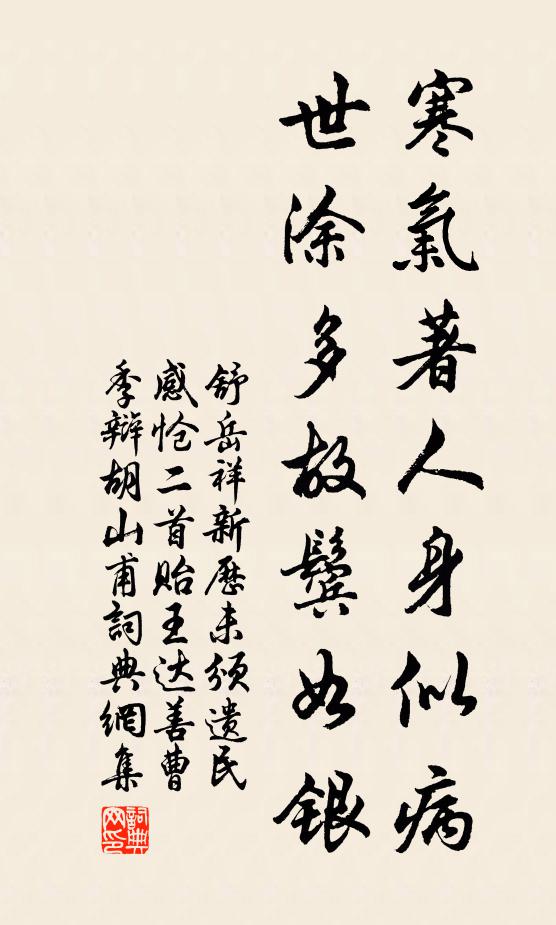 寒氣著人身似病
世涂多故鬓如銀
舒岳祥新歷未颁遗民
感怆二首貽王达善曹
季辯胡山甫詞典網集
詞典网印